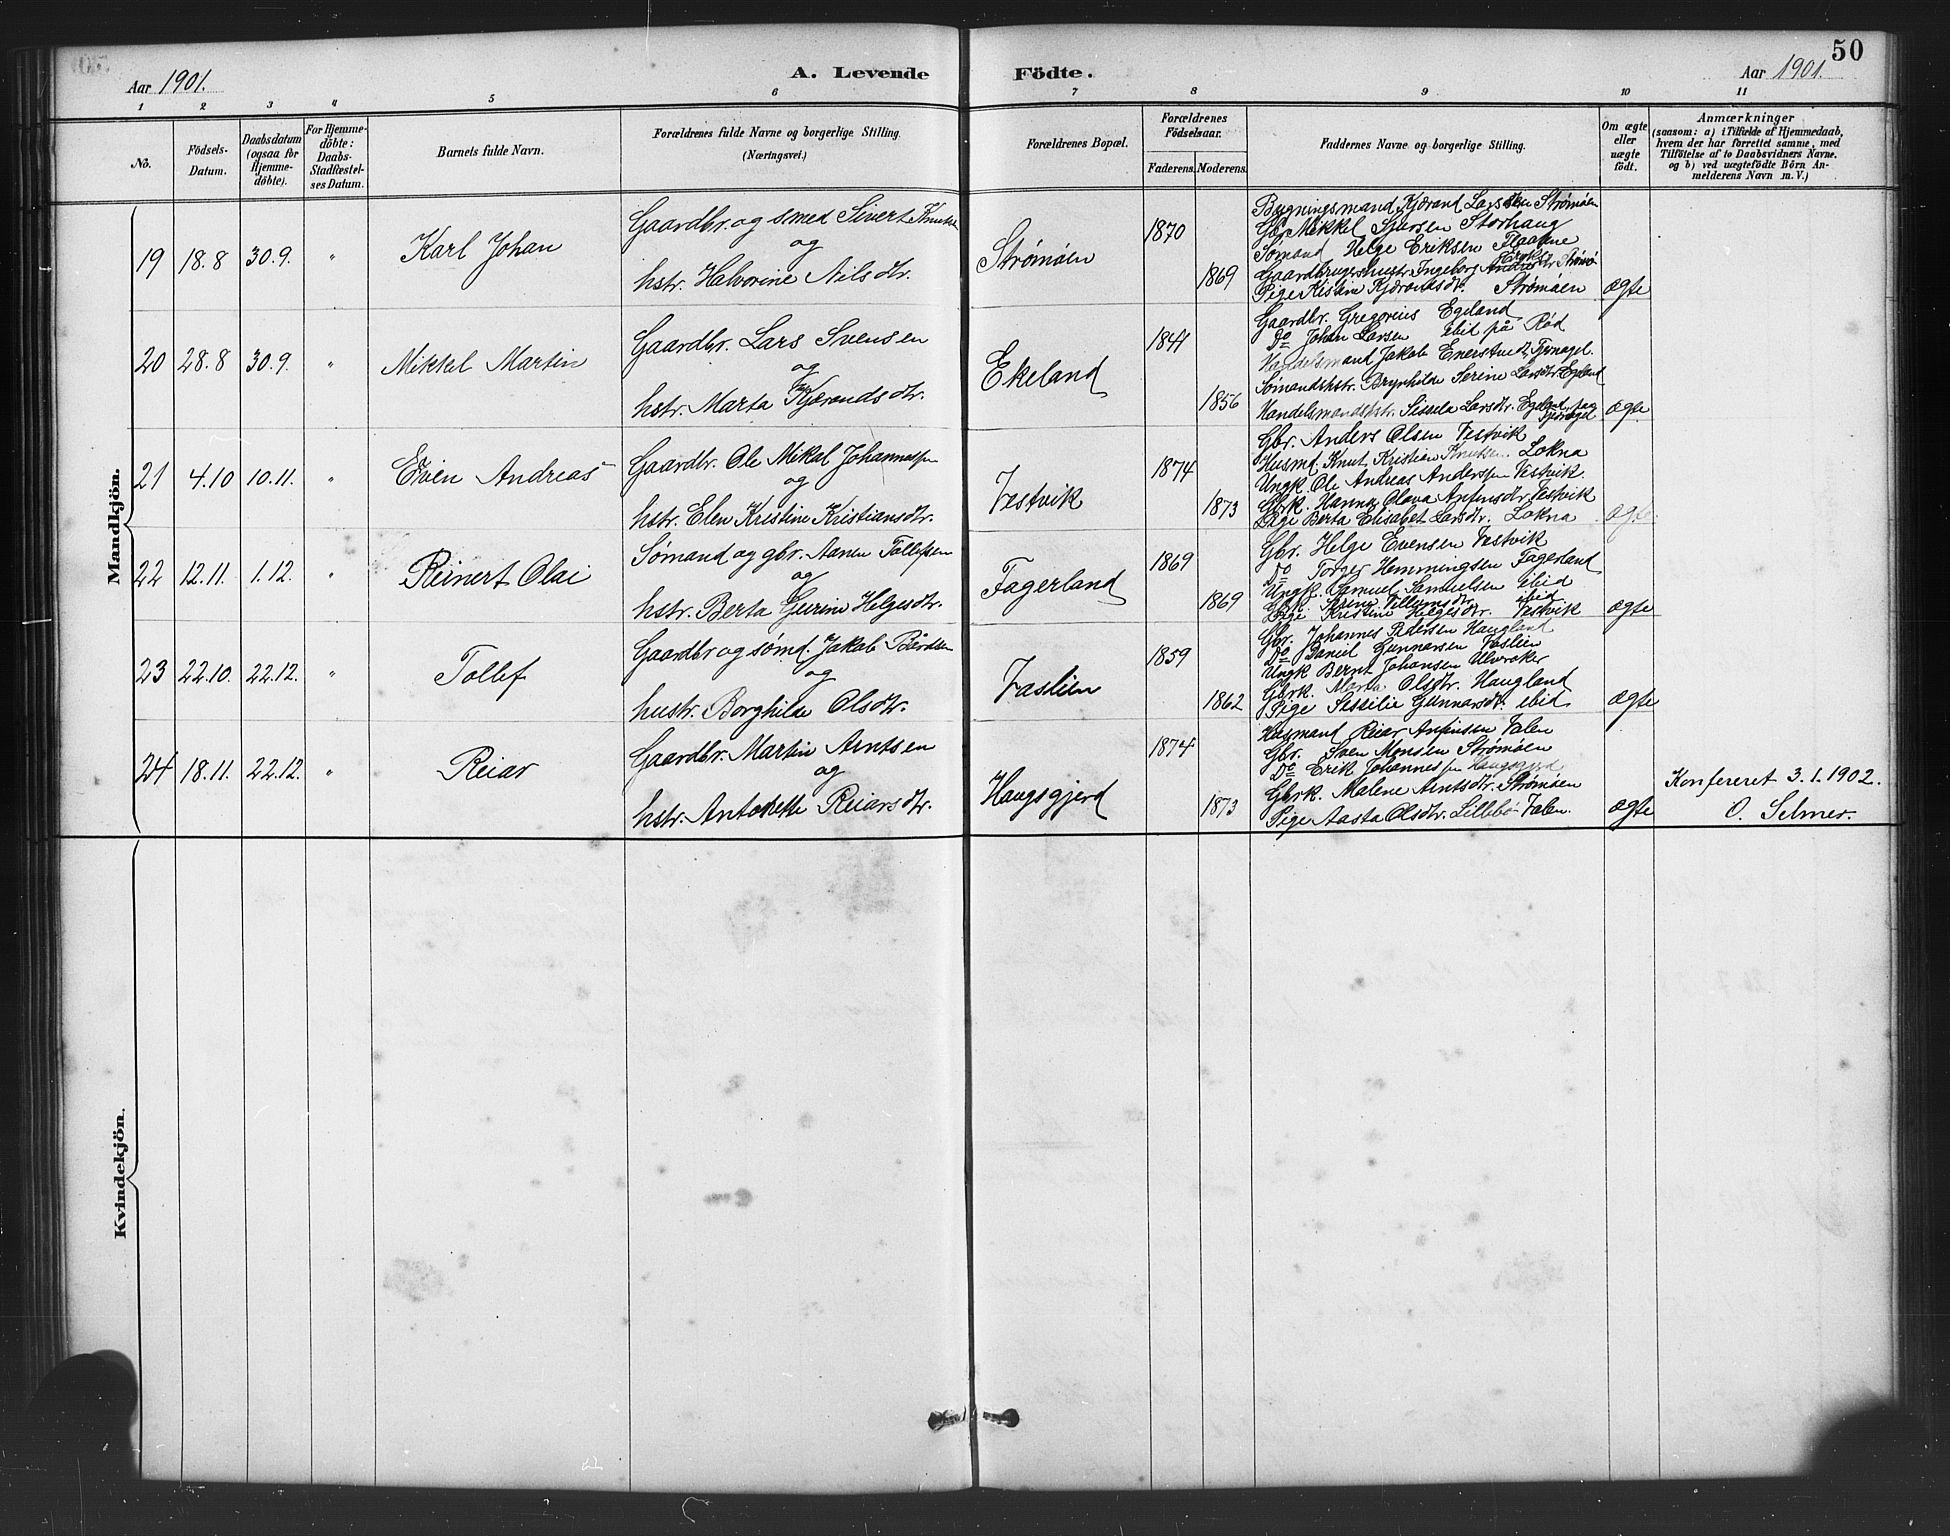 50
Aar 1901. A. Levende Födte. Aar 1901.
1 2 3 4 5 6 7 8 9 10 11
No.
Födsels-Datum.
Daabsdatum (ogsaa for Hjemme-döbte).
For Hjemme-döbte: Daabs-Stadfæstel-ses Datum.
Barnets fulde Navn.
Forældrenes fulde Navne og borgerlige Stilling.
(Næringsvei.)
Forældrenes Bopæl.
Forældrenes Födselsaar.
Faderens. Moderens.
Faddernes Navne og borgerlige Stilling.
Om ægte eller uægte födt.
Anmærkninger
(saasom: a) i Tilfælde af Hjemmedaab, hvem der har forrettet samme, med Tilföielse af to Daabsvidners Navne. og b) ved uægtefödte Börn An-melderens Navn m. V.)
Mandkjön.
19 18.8 30.9. " Karl Johan
Gaardbr. og smed Sivert Knutsen
og
hstr. Halvorine Nilsdtr.
Strømøen
1870
1869
Bygningsmand Kjærand Larssen Strømøen
Gbr Mikkel Sjursen Storhaug
Sømand Helge Eriksen
Gaardbrugerhustr. Ingeborg
Pige Kistine Kjærandsdtr. Strømøen
ægte
20 28.8 30.9. " Mikkel Martin
Gaardbr. Lars Svensen
og
hstr. Marta Kjærandsdtr.
Ekeland
1841
1856
Gaardbr. Gregorius Egeland
Do Johan Larsen ibid på Rød
Jakob
Sømandshstr. Brynhilde Serine Larsdtr. Egeland
Handelsmandshstr. Sissela Larsdtr.
ægte
21 4.10 10.11. " Even Andreas
Gaardbr. Ole Mikal Johannessen
og
hstr. Elen Kristine Kristiansdtr.
Vestvik
1874
1873
Gbr. Anders Olsen Vestvik
Husmd. Knut Kristian Knutsen Lokna
Ungk. Ole Andreas Anderssen Vestvik.
Gbrk. Hanna Olava Anfinsdtr. Vestvik
Pige Berta Elisabet Larsdtr. Lokna
ægte
22 12.11. 1.12. " Reinert Olai
Sømand og gbr. Aanen Tollefsen
og
hstr. Berta Gurine Helgesdtr.
Fagerland
1869
1869
Gbr. Helge Evensen Vestvik
Do Torger Hemmingsen Fagerland
Ungk. Samuel Samuelsen ibid
Gbrk. Serina Villumsdtr. ibid
Pige Kristine Helgesdtr. Vestvik
ægte
23 22.10. 22.12. " Tollef
Gaardbr og sømd. Jakob Bårdsen
og
hustr. Borghilde Olsdtr.
Vaslien
1859
1862
Gbr. Johannes Pedersen Haugland
Do Daniel Gunnarsen Vaslien
Ungk Bernt Johansen Ulveraker
Gbrk. Marta Olsdtr. Haugland
Pige Sessilie Gunnarsdtr. ibid.
ægte
24 18.11. 22.12. " Reiar
Gaardbr. Martin Arntsen
og
hstr. Antonette Reiarsdtr.
Haugsgjerd
1874
1873
Husmand Reiar Anfinsen Valen
Gbr. Sven Monsen Strømøen
Do Erik Johannessen Haugsgjerd
Gbrk. Malene Arntsdtr. Strømøen
Pige Aasta Olsdtr. Lillebø Valen.
ægte
Konfereret 3.1.1902.
O. Selmer.
Kvindekjön.